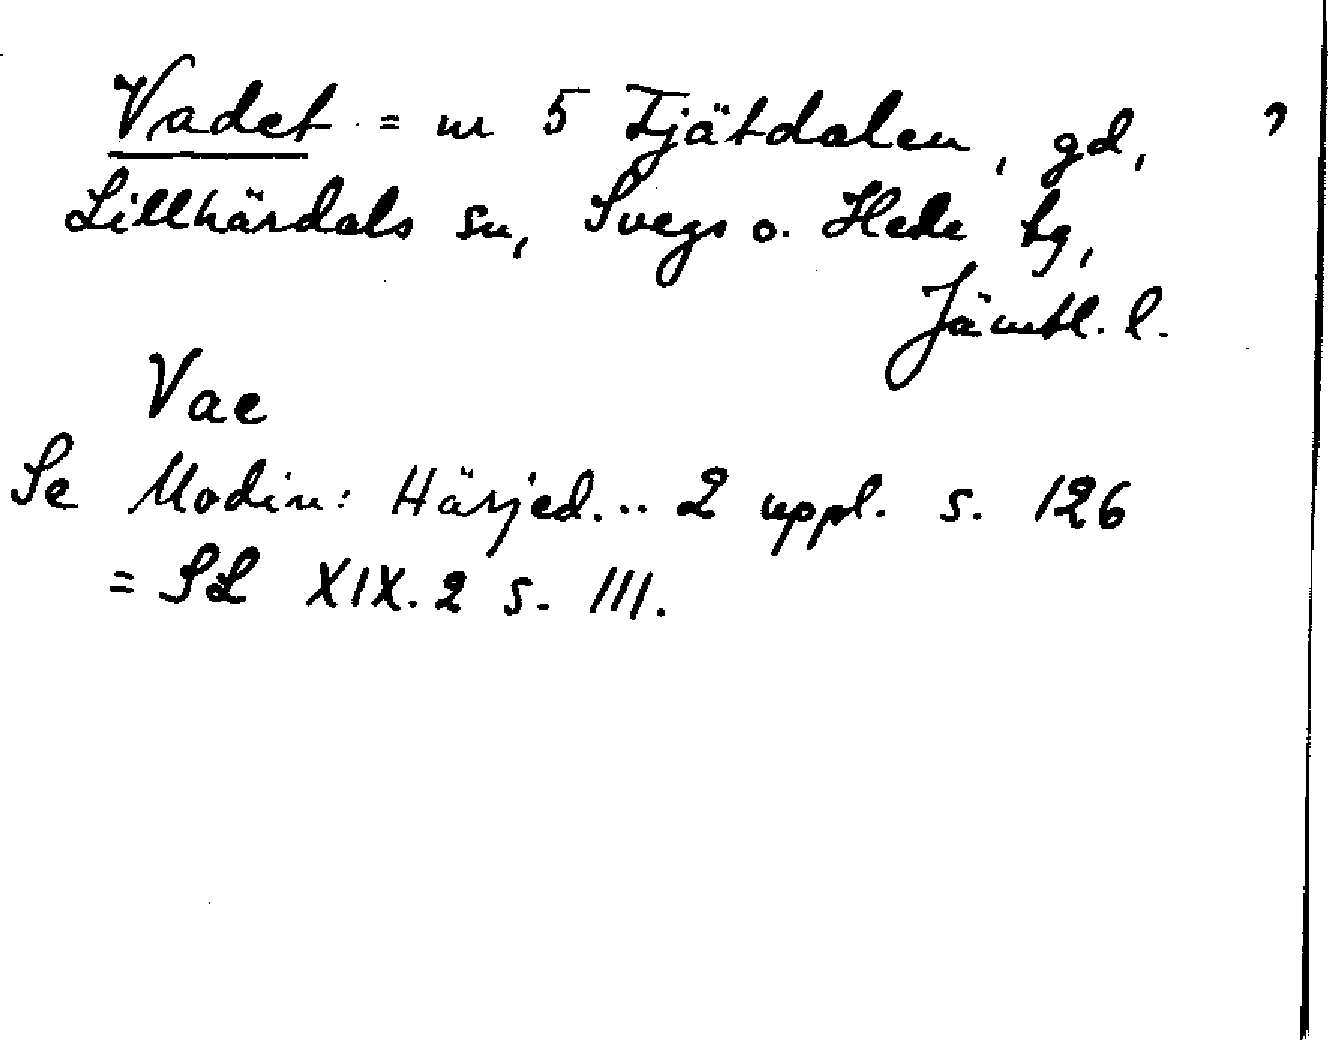 Vadet = nr 5 Tjätdalen, gd,
Lillhärdals sn, Svegs o. Hede tg,
Jämtl. l.
Vae
Se Modin: Härjed... 2 uppl. s. 126
= SL XIX. 2 s. 111.